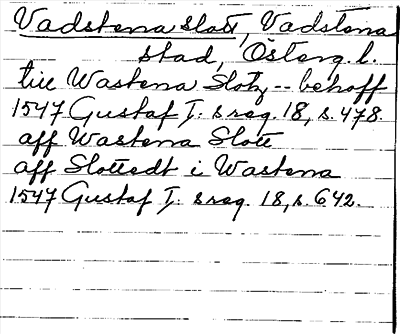 Vadstena slott, Vadstena
stad, Österg. l.
till Wastena Slotz -- behoff
1547 Gustaf I:s reg. 18, s. 478.
aff Wastena Slott
aff Slottedt i Wastena
1547 Gustaf I:s reg. 18, s. 642.